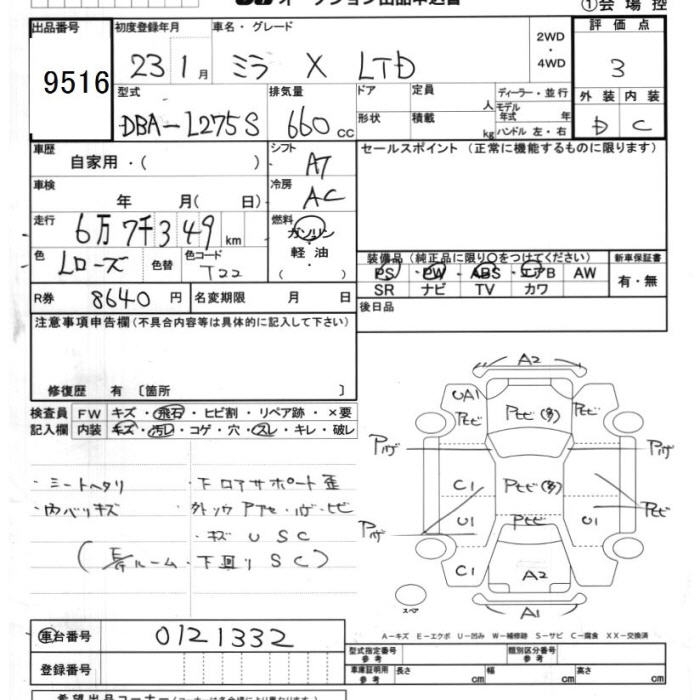 オークション出品申込書
①会場控
出品番号 初度登録年月 車名・グレード 2WD・4WD 評価点
9516 23 1月 ミラ X LTD 3
型式 排気量 ドア 定員 人 ディーラー・並行 外装 内装
DBA-L275S 660cc 形状 積載 kg モデル年式 年 ハンドル 左・右 D C
車歴 自家用・( ) シフト AT セールスポイント (正常に機能するものに限ります)
車検 年 月( 日) 冷房 AC
走行 6万7千349km 燃料 ガソリン・軽油・( )
色 Lローズ 色替 色コード T22 装備品 (純正品に限り○をつけてください) 新車保証書
PS・PW・ABS・エアB AW 有・無
SR ナビ TV カワ
R券 8640円 名変期限 月 日 後日品
注意事項申告欄(不具合内容等は具体的に記入して下さい)
修復歴 有 〔箇所 〕
検査員 FW キズ・飛石・ヒビ割・リペア跡・×要
記入欄 内装 キズ・汚レ・コゲ・穴・スレ・キレ・破レ
・シートヘタリ ・下ロアサポート歪
・内バリキズ ・外ソウ Pアセ・ハゲ・ヒビ
・キズ U S C
(ルーム・下回り S C)
A2
UA1 Pヒビ Pヒビ(多) Pヒビ
Pハゲ Pハゲ
C1 Pヒビ(多)
Pハゲ U1 Pヒビ U1 Pヒビ
C1 A2
スペア A1
A-キズ E-エクボ U-凹み W-補修跡 S-サビ C-腐食 XX-交換済
車台番号 0121332 型式指定番号 参考 類別区分番号 参考
登録番号 車庫証明用 参考 長さ cm 幅 cm 高さ cm
希望出品コーナー